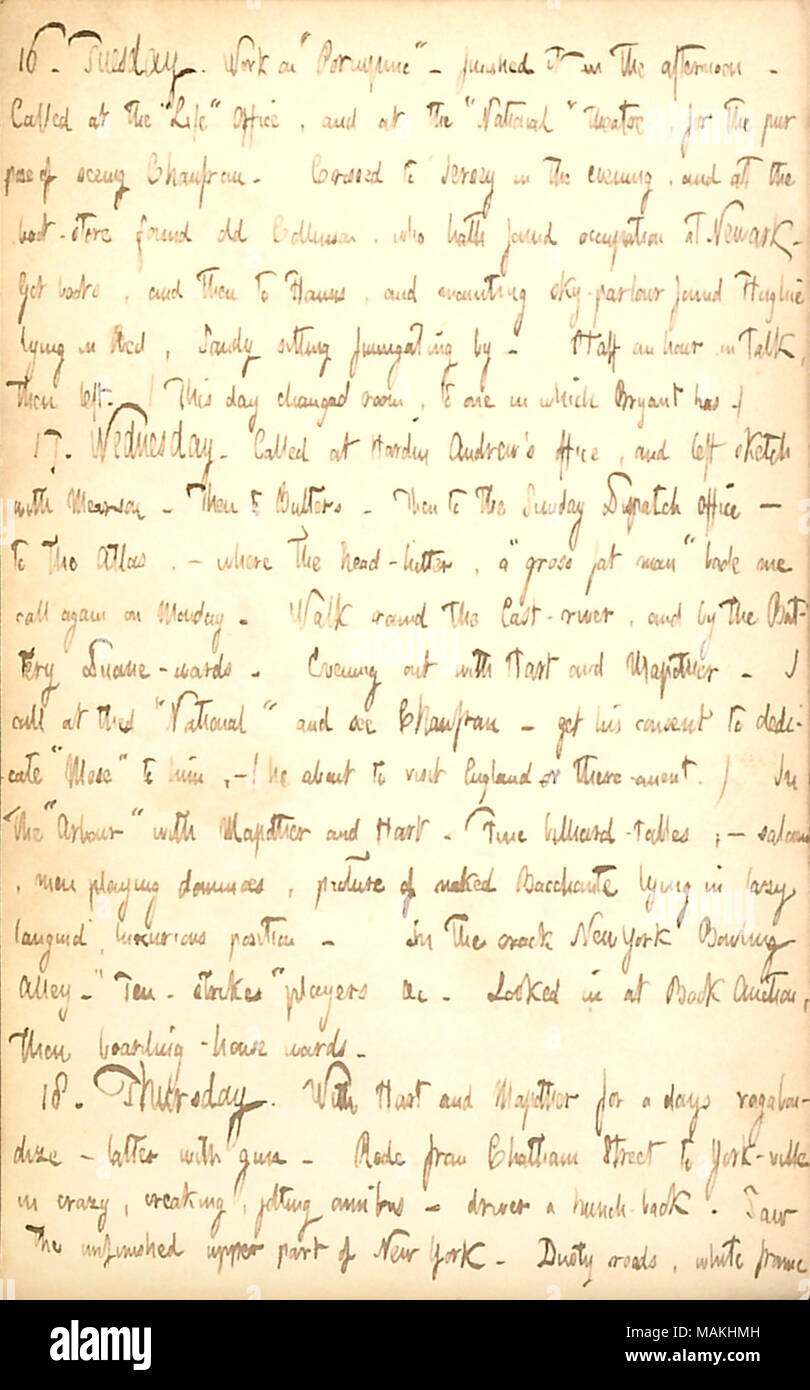 16. Tuesday. Work on "Porcupine" - finished it in the afternoon -
Called at the "Life" Office, and at the "National" Theatre, for the pur
pose of seeing Chanfrau. Crossed to Jersey in the evening, and at the
boot-store found old Collinson, who hath found occupation at Newark.
Got boots, and then to Hanns, and mounting sky-parlour found Hughie
lying in Bed, Sandy sitting fumigating by - Half an hour in talk,
then left. (This day changed room, to one in which Bryant has.)
17. Wednesday. Called at Hardin Andrew's office, and left sketch
with Mearson - Then to Butlers - Then to the Sunday Dispatch Office -
to the Atlas, - where the head-hitter, a "gross fat man" bade me
call again on Monday. Walk round the East-river, and by the Bat-
tery Duane-wards. Evening out with Hart and Mapother - I
call at the "National" and see Chanfrau - get his consent to dedi-
cate "Mose" to him, - (he about to visit England or there-anent.) In
the "Arbour" with Mapother and Hart - Fine billiard-tables; - saloon
, men playing dominoes, picture of naked Bacchante lying in lazy
languid, luxurious position - In the crack New York Bowling
Alley - "Ten-strikes" players &c - Looked in at Book Auction,
then boarding-house wards.
18. Thursday. With Hart and Mapother for a days vagabon-
dize - latter with gun - Rode from Chatham Street to York-ville
in crazy, creaking, jolting omnibus - driver a hunch-back. Saw
the unfinished upper part of New York - Dusty roads, white frame
alamy
Image ID: MAKHMH
www.alamy.com